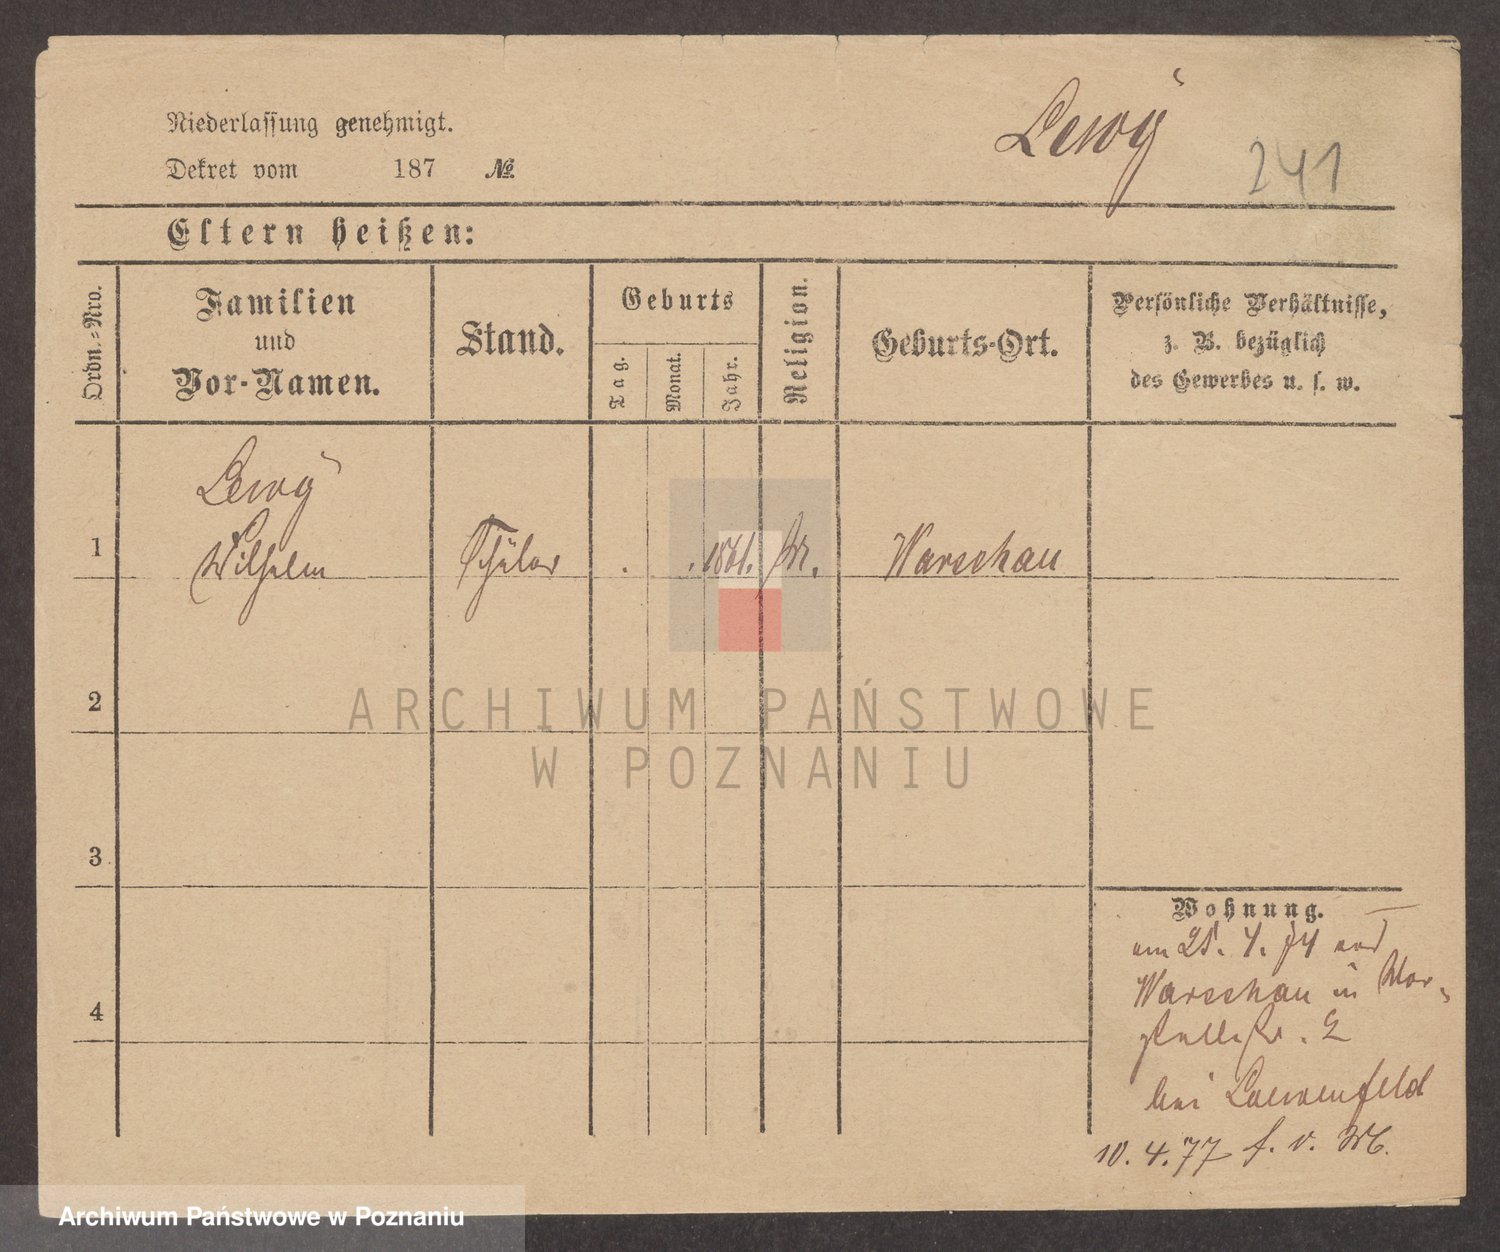 Niederlassung genehmigt.
Dekret vom 187 №
Lewÿ
241
Eltern heißen:
Ordn.-Nro.
Familien
und
Vor-Namen.
Stand.
Geburts
Tag.
Monat.
Jahr.
Religion.
Geburts-Ort.
Persönliche Verhältnisse,
z. B. bezüglich
des Gewerbes u. s. w.
Lewÿ
1 Wilhelm Schüler . . 1861. Warschau
2
3
4
ARCHIWUM PAŃSTWOWE
W POZNANIU
Wohnung.
am 4. 74
Warschau in
2
bei Loewenfeld
10. 4. 77 f. v.
Archiwum Państwowe w Poznaniu